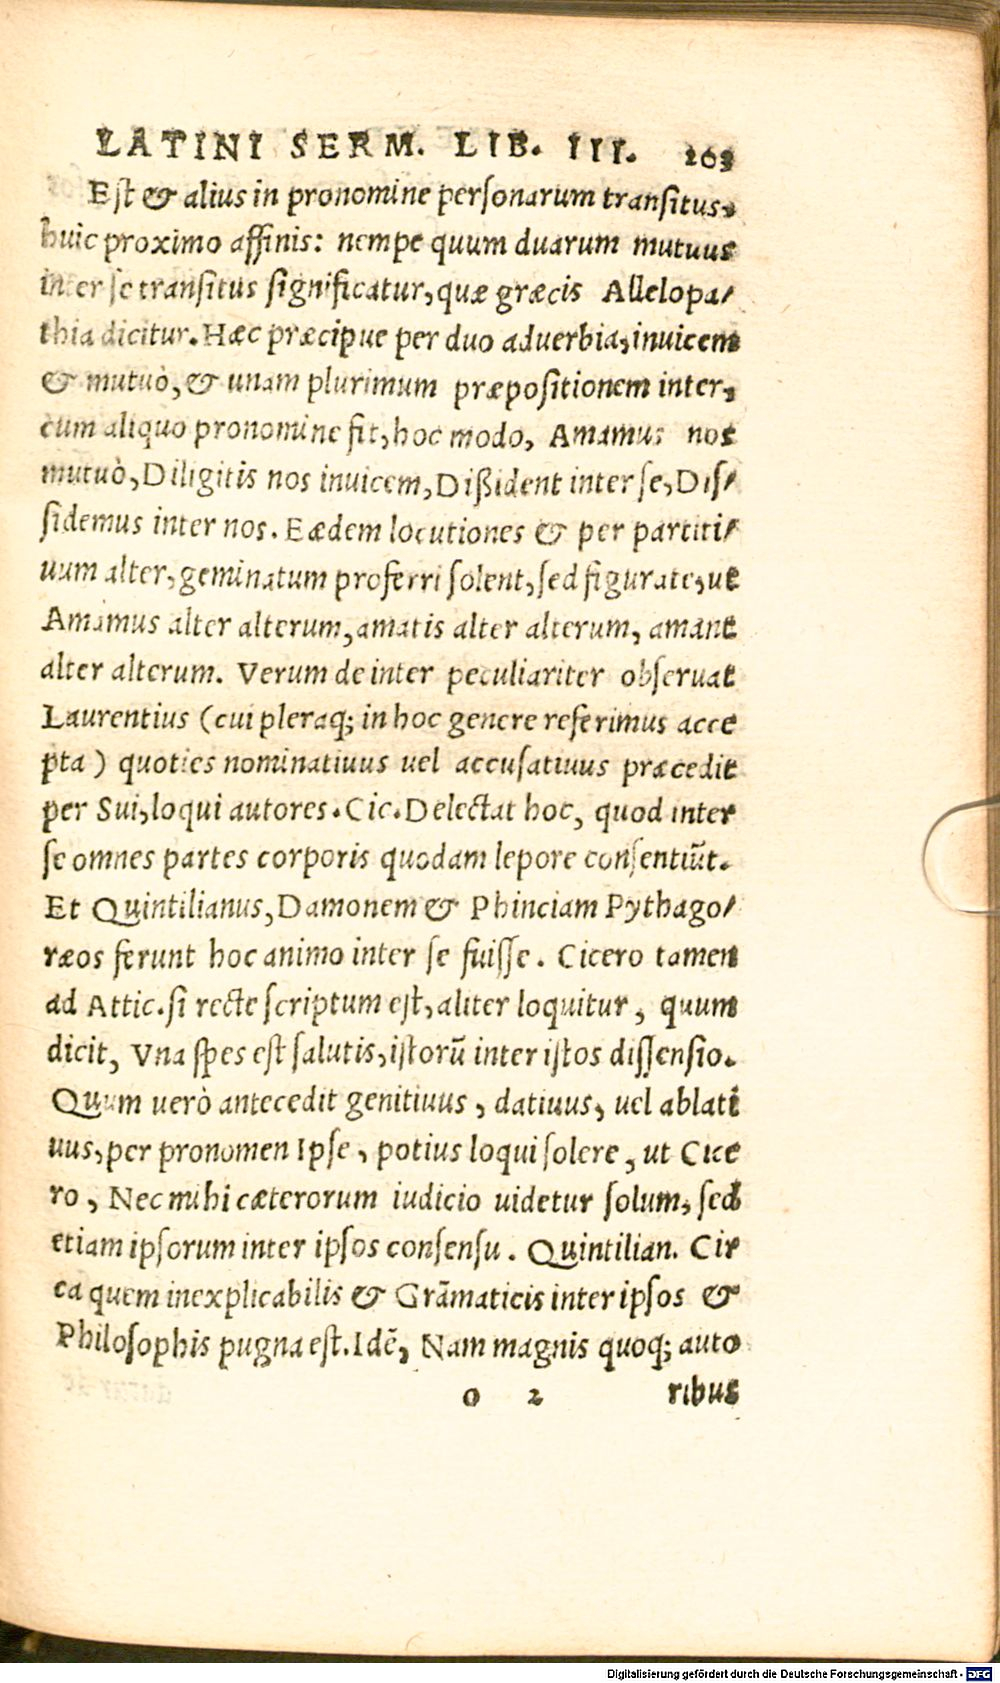 LATINI SERM. LIB. III. 203
Est & alius in pronomine personarum transitus,
huic proximo affinis: nempe quum duarum mutuus
inter se transitus significatur, quæ græcis Allelopa/
thia dicitur. Hæc præcipue per duo adverbia, invicem
& mutuò, & unam plurimum præpositionem inter,
cum aliquo pronomine fit, hoc modo, Amamus nos
mutuò, Diligitis nos inuicem, Dißident inter se, Dis/
sidemus inter nos. Eædem locutiones & per partiti/
uum alter, geminatum proferri solent, sed figurate, ut
Amamus alter alterum, amatis alter alterum, amant
alter alterum. Verum de inter peculiariter obseruat
Laurentius (cui pleraq; in hoc genere referimus acce
pta) quoties nominatiuus uel accusatiuus præcedit
per Sui, loqui autores. Cic. Delectat hoc, quod inter
se omnes partes corporis quodam lepore consentiūt.
Et Quintilianus, Damonem & Phinciam Pythago/
ræos ferunt hoc animo inter se fuisse. Cicero tamen
ad Attic. si recte scriptum est, aliter loquitur, quum
dicit, Vna spes est salutis, istorū inter istos dissensio.
Quum uerò antecedit genitiuus, datiuus, uel ablati
uus, per pronomen Ipse, potius loqui solere, ut Cice
ro, Nec mihi cæterorum iudicio uidetur solum, sed
etiam ipsorum inter ipsos consensu. Quintilian. Cir
ca quem inexplicabilis & Grāmaticis inter ipsos &
Philosophis pugna est. Idē, Nam magnis quoq; auto
o 2 ribus
Digitalisierung gefördert durch die Deutsche Forschungsgemeinschaft - DFG